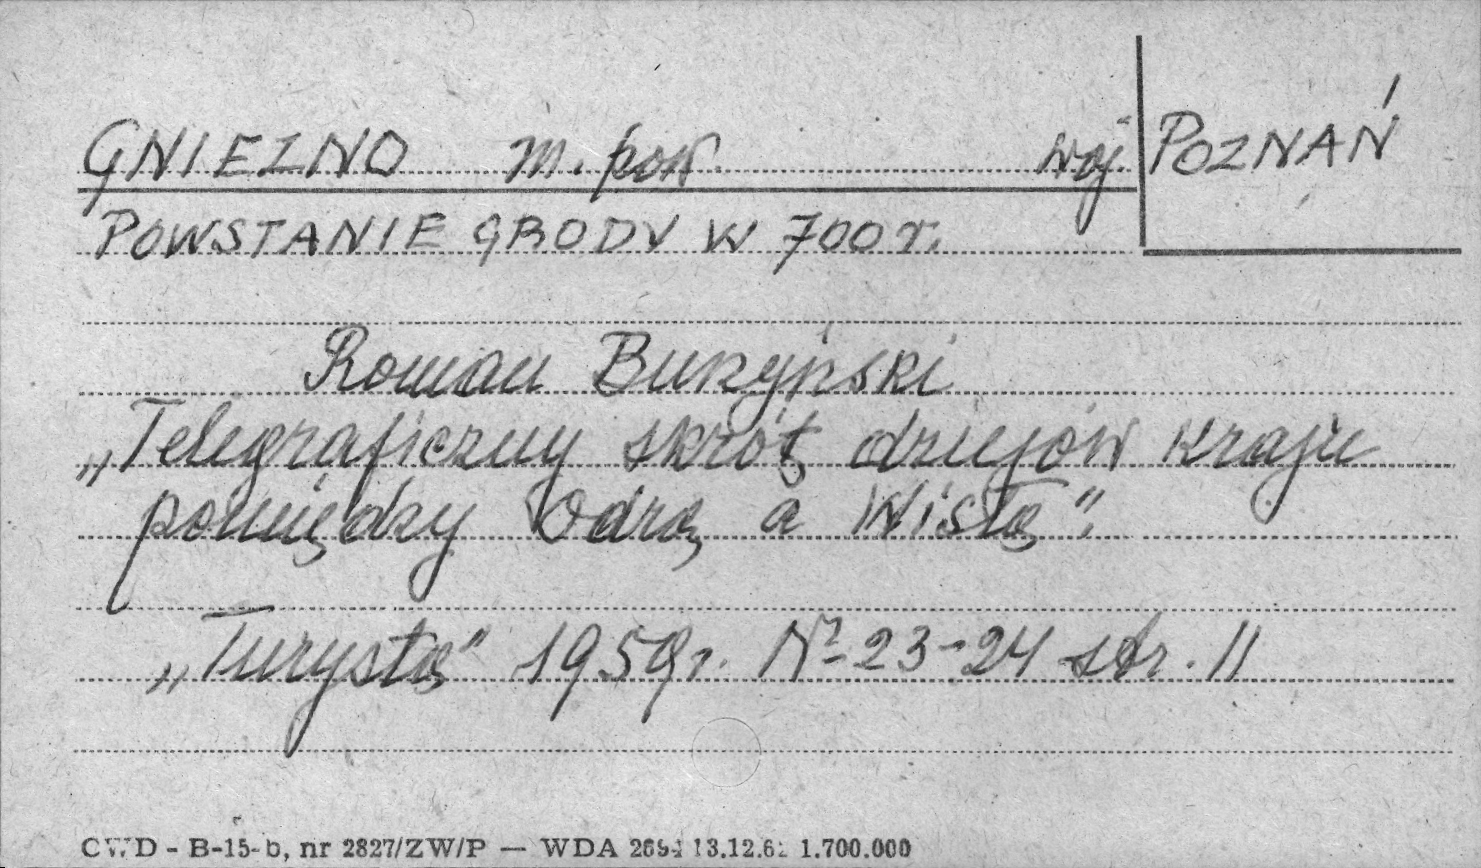 GNIEZNO m. pow. woj. POZNAŃ
POWSTANIE GRODU W 700 r.
Roman Burzyński
„Telegraficzny skrót dziejów kraju
pomiędzy Odrą a Wisłą".
„Turysta" 1959 r. Nr 23-24 str. 11
CWD - B-15-b, nr 2827/ZW/P — WDA 13.12.6 1.700.000